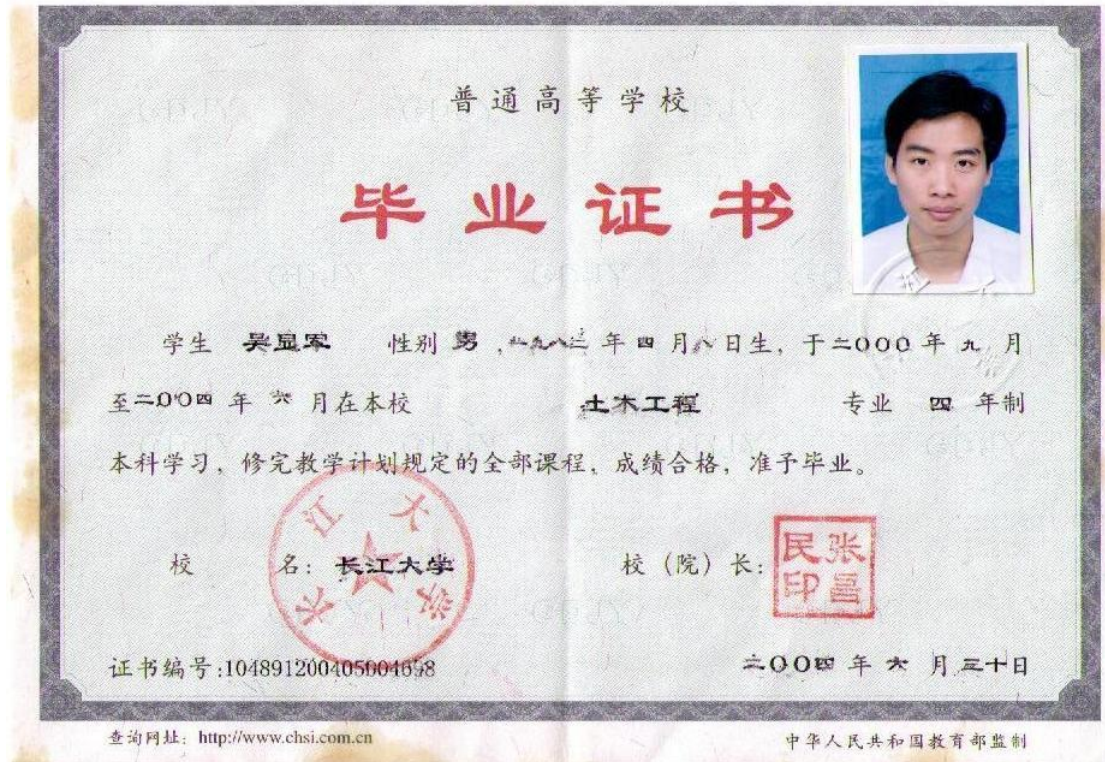 普通高等学校
毕业证书
学生 吴显军 性别 男，一九八二年四月八日生，于二000年九月
至二00四年六月在本校 土木工程 专业 四年制
本科学习，修完教学计划规定的全部课程，成绩合格，准予毕业。
校 名：长江大学 校（院）长：张昌民印
长江大学
证书编号:104891200405004698 二00四年六月三十日
查询网址：http://www.chsi.com.cn 中华人民共和国教育部监制